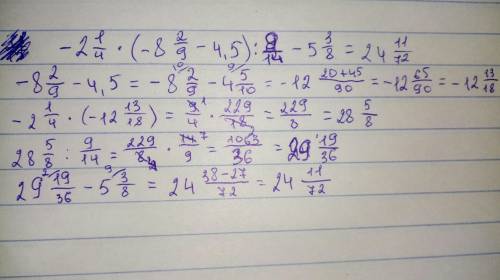 -2 1/4 · (-8 2/9 - 4,5) : 9/14 - 5 3/8 = 24 11/72
-8 2/9 - 4,5 = -8 2/9 - 4 5/10 = -12 20+45/90 = -12 65/90 = -12 13/18
-2 1/4 · (-12 13/18) = 9/4 · 229/18 = 229/8 = 28 5/8
28 5/8 : 9/14 = 229/8 · 14/9 = 1063/36 = 29 19/36
29 19/36 - 5 3/8 = 24 38-27/72 = 24 11/72